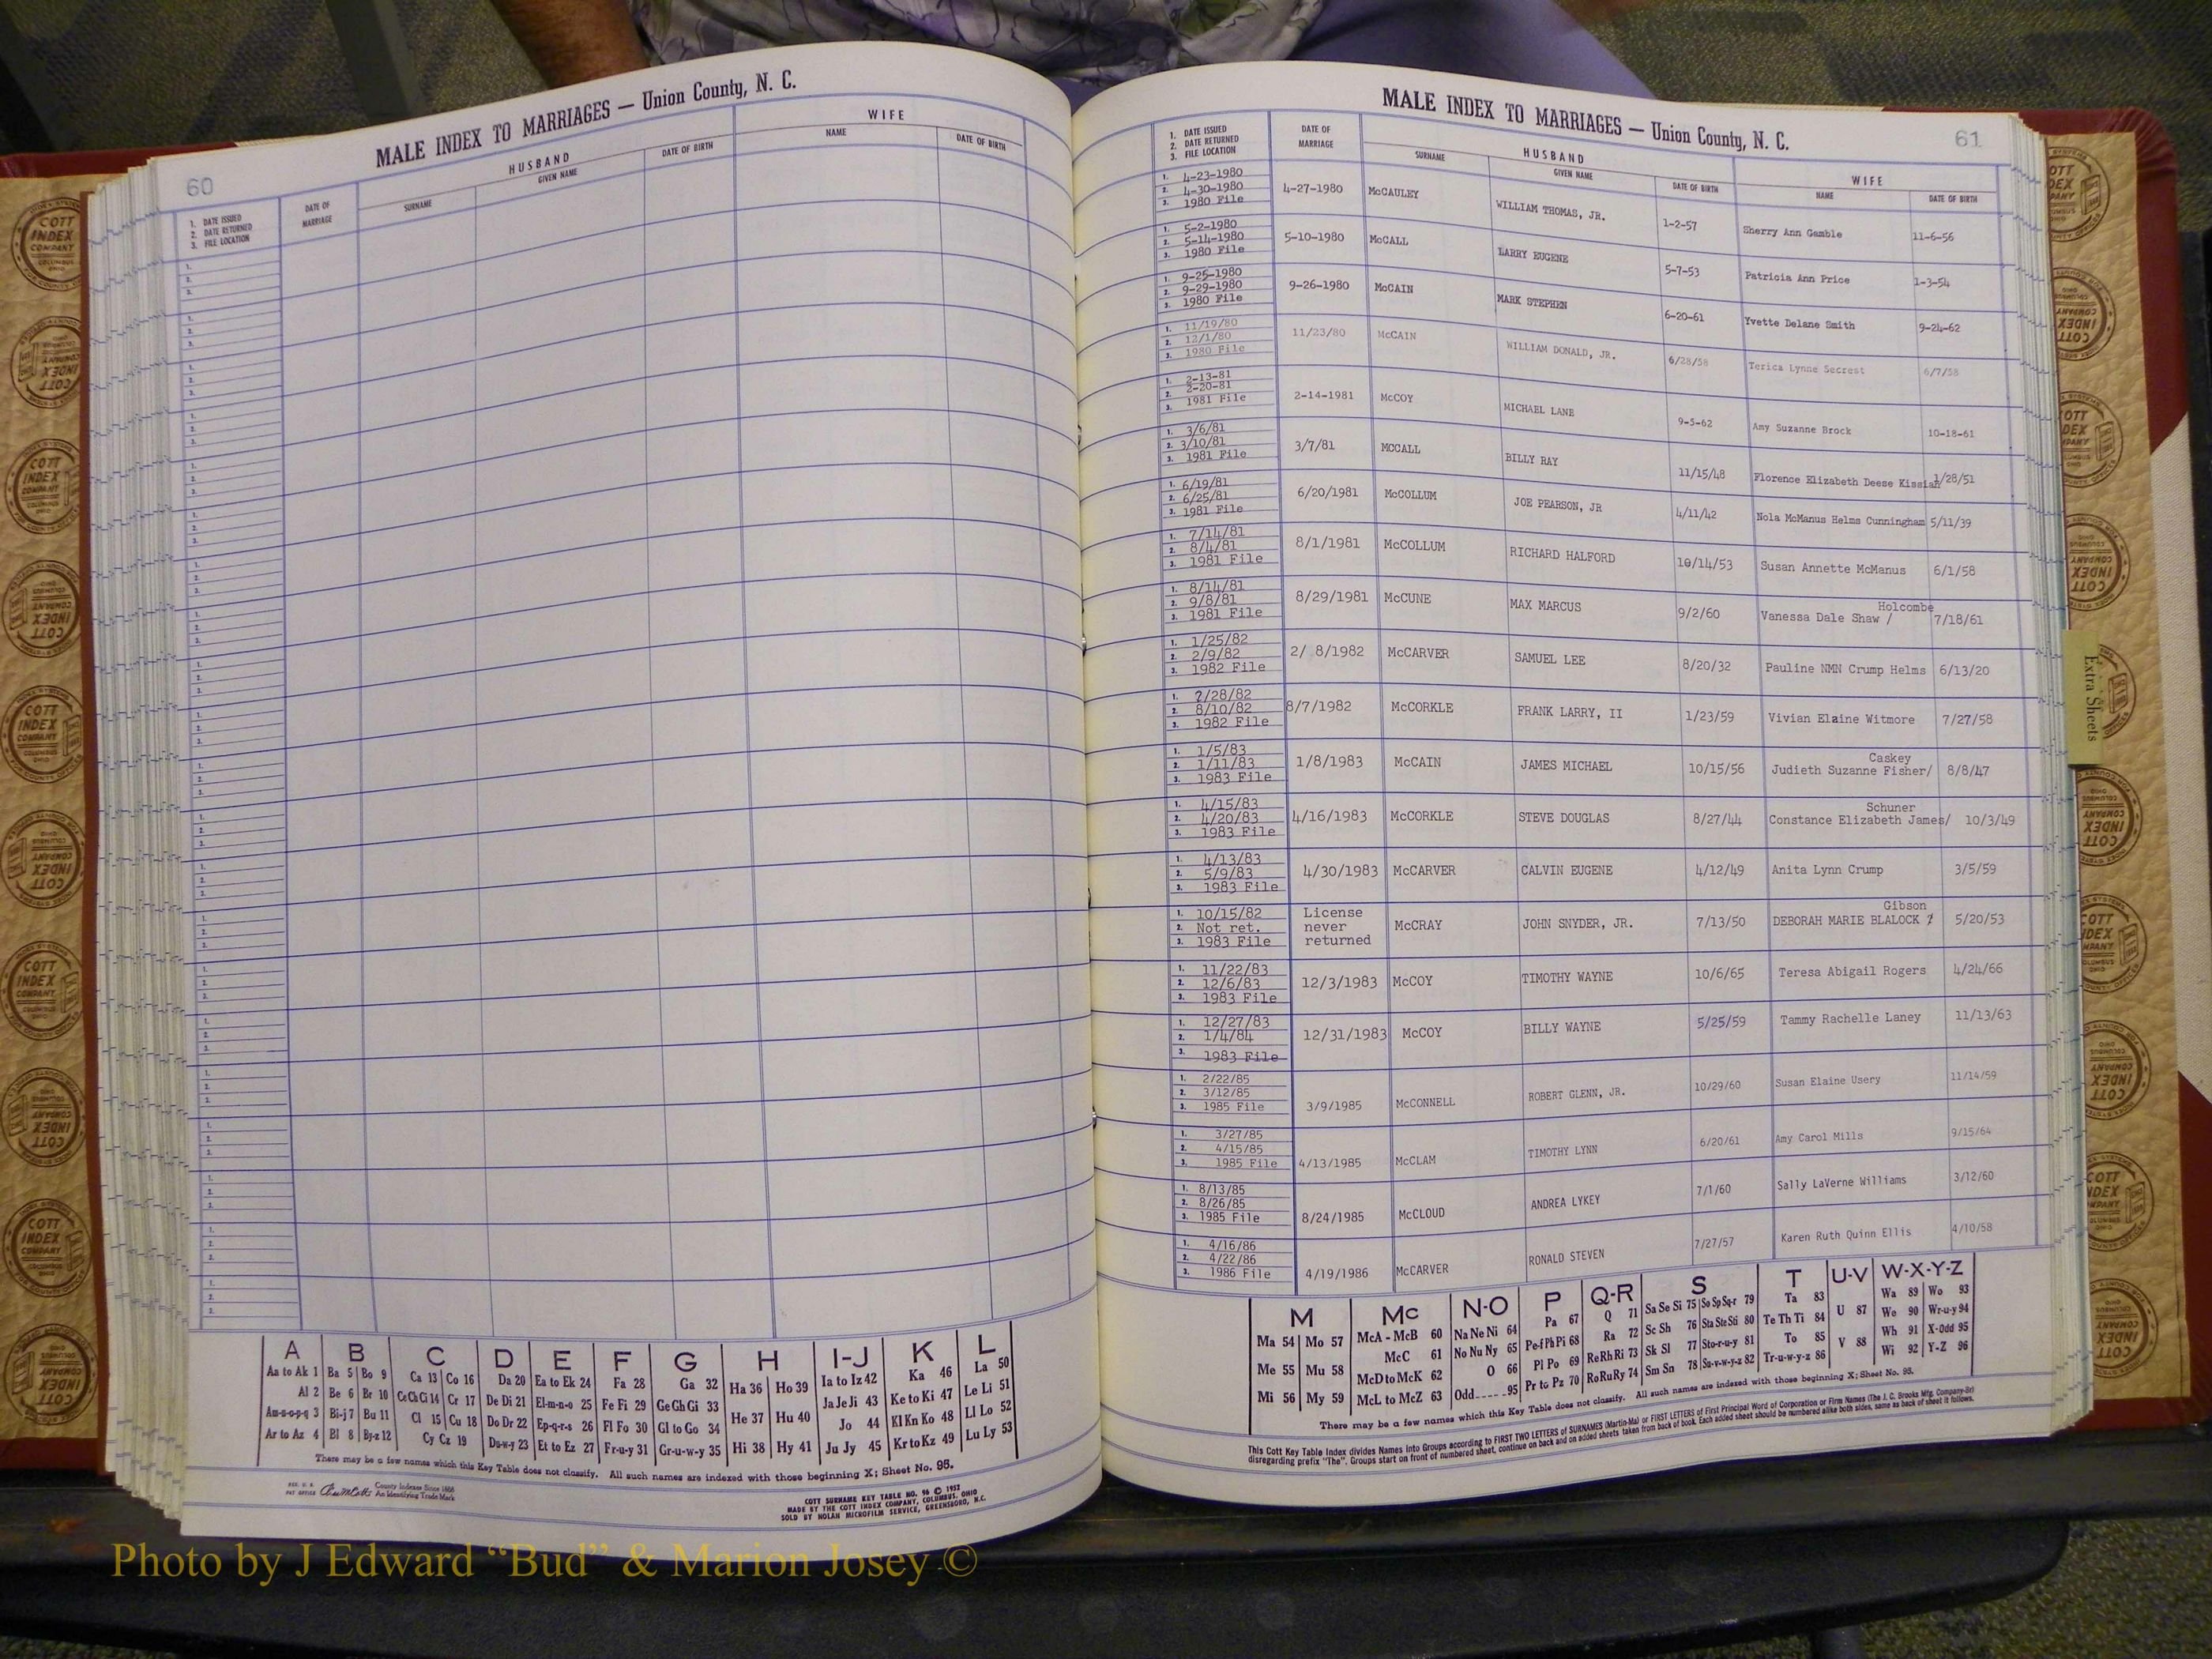 60
MALE INDEX TO MARRIAGES — Union County, N. C.
HUSBAND
WIFE
1. DATE ISSUED
2. DATE RETURNED
3. FILE LOCATION
DATE OF MARRIAGE
SURNAME
GIVEN NAME
DATE OF BIRTH
NAME
DATE OF BIRTH
A B C D E F G H I-J K L
Aa to Ak 1 Ba 5 Bo 9 Ca 13 Co 16 Da 20 Ea to Ek 24 Fa 28 Ga 32 Ha 36 Ho 39 Ia to Iz 42 Ka 46 La 50
Al 2 Be 6 Br 10 Ce Ch Ci 14 Cr 17 De Di 21 El-m-n-o 25 Fe Fi 29 Ge Gh Gi 33 He 37 Hu 40 Ja Je Ji 43 Ke to Ki 47 Le Li 51
Am-n-o-p-q 3 Bi-j 7 Bu 11 Cl 15 Cu 18 Do Dr 22 Ep-q-r-s 26 Fl Fo 30 Gl to Go 34 Hi 38 Hy 41 Jo 44 Kl Kn Ko 48 Ll Lo 52
Ar to Az 4 Bl 8 By-z 12 Cy Cz 19 Du-w-y 23 Et to Ez 27 Fr-u-y 31 Gr-u-w-y 35 Ju Jy 45 Kr to Kz 49 Lu Ly 53
There may be a few names which this Key Table does not classify. All such names are indexed with those beginning X; Sheet No. 95.
County Indexes Since 1888
An Identifying Trade Mark
COTT SURNAME KEY TABLE NO. 96 © 1952
MADE BY THE COTT INDEX COMPANY, COLUMBUS, OHIO
SOLD BY NOLAN MICROFILM SERVICE, GREENSBORO, N.C.
MALE INDEX TO MARRIAGES — Union County, N. C.
61
1. DATE ISSUED
2. DATE RETURNED
3. FILE LOCATION
DATE OF MARRIAGE
HUSBAND
SURNAME
GIVEN NAME
DATE OF BIRTH
WIFE
NAME
DATE OF BIRTH
1. 4-23-1980
2. 4-30-1980 4-27-1980 McCAULEY WILLIAM THOMAS, JR. 1-2-57 Sherry Ann Gamble 11-6-56
3. 1980 File
1. 5-2-1980
2. 5-14-1980 5-10-1980 McCALL LARRY EUGENE 5-7-53 Patricia Ann Price 1-3-54
3. 1980 File
1. 9-25-1980
2. 9-29-1980 9-26-1980 McCAIN MARK STEPHEN 6-20-61 Yvette Delane Smith 9-24-62
3. 1980 File
1. 11/19/80
2. 12/1/80 11/23/80 McCAIN WILLIAM DONALD, JR. 6/28/58 Terica Lynne Secrest 6/7/58
3. 1980 File
1. 2-13-81
2. 2-20-81 2-14-1981 McCOY MICHAEL LANE 9-5-62 Amy Suzanne Brock 10-18-61
3. 1981 File
1. 3/6/81
2. 3/10/81 3/7/81 MCCALL BILLY RAY 11/15/48 Florence Elizabeth Deese Kissiah 1/28/51
3. 1981 File
1. 6/19/81
2. 6/25/81 6/20/1981 McCOLLUM JOE PEARSON, JR 4/11/42 Nola McManus Helms Cunningham 5/11/39
3. 1981 File
1. 7/14/81
2. 8/4/81 8/1/1981 McCOLLUM RICHARD HALFORD 10/14/53 Susan Annette McManus 6/1/58
3. 1981 File
1. 8/14/81 Holcombe
2. 9/8/81 8/29/1981 McCUNE MAX MARCUS 9/2/60 Vanessa Dale Shaw / 7/18/61
3. 1981 File
1. 1/25/82
2. 2/9/82 2/ 8/1982 McCARVER SAMUEL LEE 8/20/32 Pauline NMN Crump Helms 6/13/20
3. 1982 File
1. 7/28/82
2. 8/10/82 8/7/1982 McCORKLE FRANK LARRY, II 1/23/59 Vivian Elaine Witmore 7/27/58
3. 1982 File
1. 1/5/83 Caskey
2. 1/11/83 1/8/1983 McCAIN JAMES MICHAEL 10/15/56 Judieth Suzanne Fisher/ 8/8/47
3. 1983 File
1. 4/15/83 Schuner
2. 4/20/83 4/16/1983 McCORKLE STEVE DOUGLAS 8/27/44 Constance Elizabeth James/ 10/3/49
3. 1983 File
1. 4/13/83
2. 5/9/83 4/30/1983 McCARVER CALVIN EUGENE 4/12/49 Anita Lynn Crump 3/5/59
3. 1983 File
1. 10/15/82 License Gibson
2. Not ret. never McCRAY JOHN SNYDER, JR. 7/13/50 DEBORAH MARIE BLALOCK / 5/20/53
3. 1983 File returned
1. 11/22/83
2. 12/6/83 12/3/1983 McCOY TIMOTHY WAYNE 10/6/65 Teresa Abigail Rogers 4/24/66
3. 1983 File
1. 12/27/83
2. 1/4/84 12/31/1983 McCOY BILLY WAYNE 5/25/59 Tammy Rachelle Laney 11/13/63
3. 1983 File
1. 2/22/85
2. 3/12/85
3. 1985 File 3/9/1985 McCONNELL ROBERT GLENN, JR. 10/29/60 Susan Elaine Usery 11/14/59
1. 3/27/85
2. 4/15/85
3. 1985 File 4/13/1985 McCLAM TIMOTHY LYNN 6/20/61 Amy Carol Mills 9/15/64
1. 8/13/85
2. 8/26/85
3. 1985 File 8/24/1985 McCLOUD ANDREA LYKEY 7/1/60 Sally LaVerne Williams 3/12/60
1. 4/16/86
2. 4/22/86
3. 1986 File 4/19/1986 McCARVER RONALD STEVEN 7/27/57 Karen Ruth Quinn Ellis 4/10/58
M Mc N-O P Q-R S T U-V W-X-Y-Z
Ma 54 Mo 57 McA - McB 60 Na Ne Ni 64 Pa 67 Q 71 Sa Se Si 75 So Sp Sq-r 79 Ta 83 U 87 Wa 89 Wo 93
Me 55 Mu 58 McC 61 No Nu Ny 65 Pe-f Ph Pi 68 Ra 72 Sc Sh 76 Sta Ste Sti 80 Te Th Ti 84 V 88 We 90 Wr-u-y 94
Mi 56 My 59 McD to McK 62 O 66 Pl Po 69 Re Rh Ri 73 Sk Sl 77 Sto-r-u-y 81 To 85 Wh 91 X-Odd 95
McL to McZ 63 Odd 95 Pr to Pz 70 Ro Ru Ry 74 Sm Sn 78 Su-v-w-y-z 82 Tr-u-w-y-z 86 Wi 92 Y-Z 96
There may be a few names which this Key Table does not classify. All such names are indexed with those beginning X; Sheet No. 95.
This Cott Key Table Index divides Names into Groups according to FIRST TWO LETTERS of SURNAMES (Martin-Ma) or FIRST LETTERS of First Principal Word of Corporation or Firm Names (The J. C. Brooks Mfg. Company-Br)
disregarding prefix "The". Groups start on front of numbered sheet, continue on back and on added sheets taken from back of book. Each added sheet should be numbered alike both sides, same as back of sheet it follows.
Extra Sheets
COTT
INDEX
COMPANY
COLUMBUS
OHIO
Photo by J Edward "Bud" & Marion Josey ©